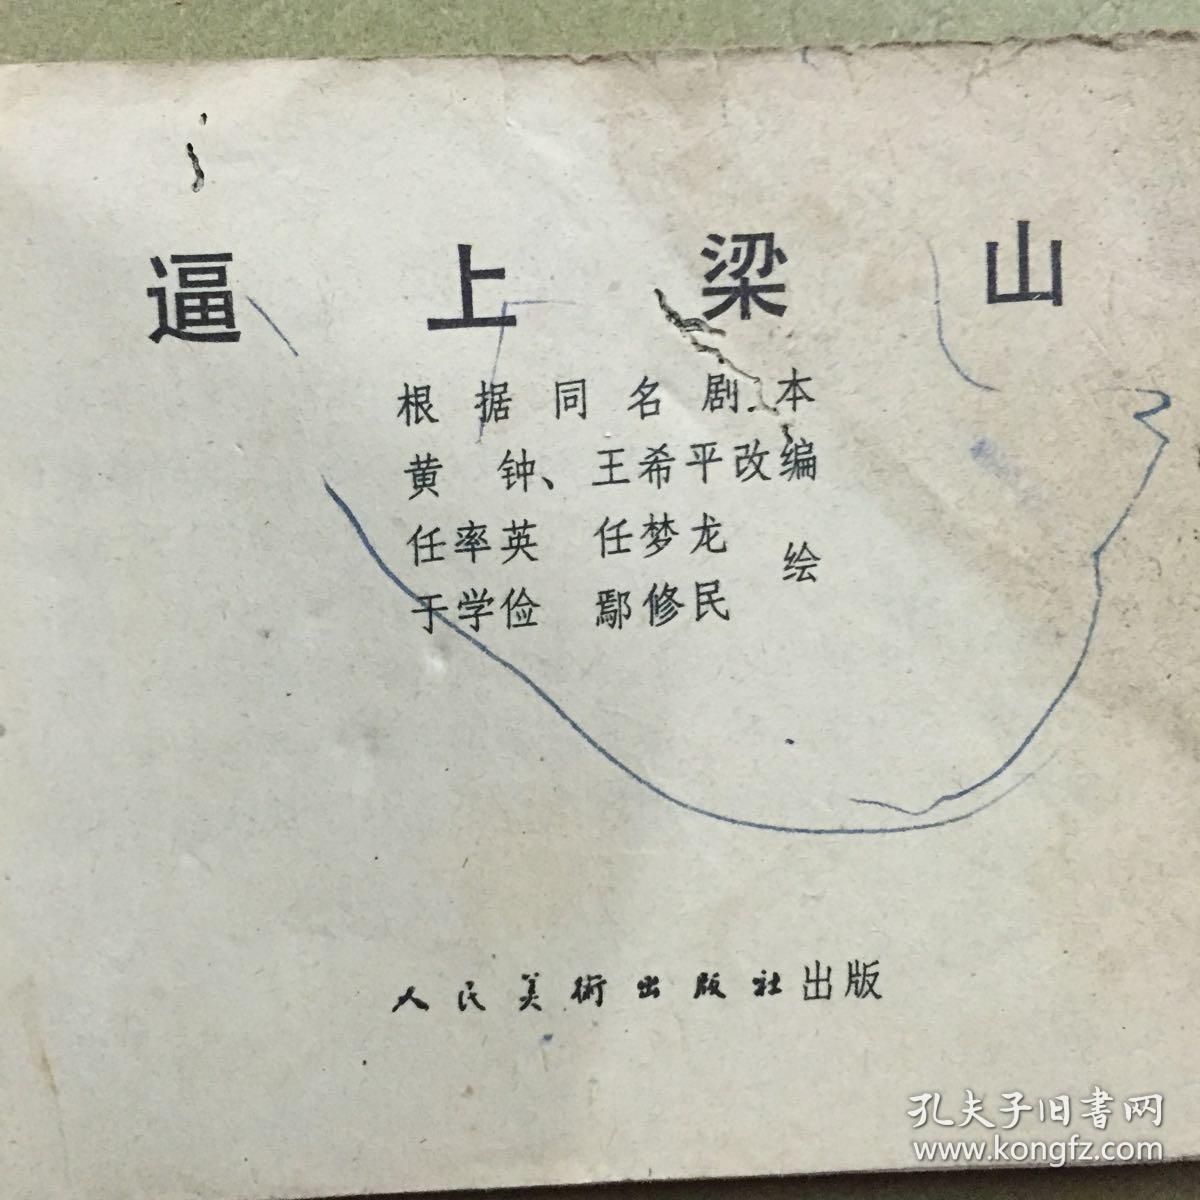 逼上梁山
根据同名剧本
黄钟、王希平改编
任率英 任梦龙
于学俭 鄢修民
绘
人民美術出版社出版
孔夫子旧書网
www.kongfz.com